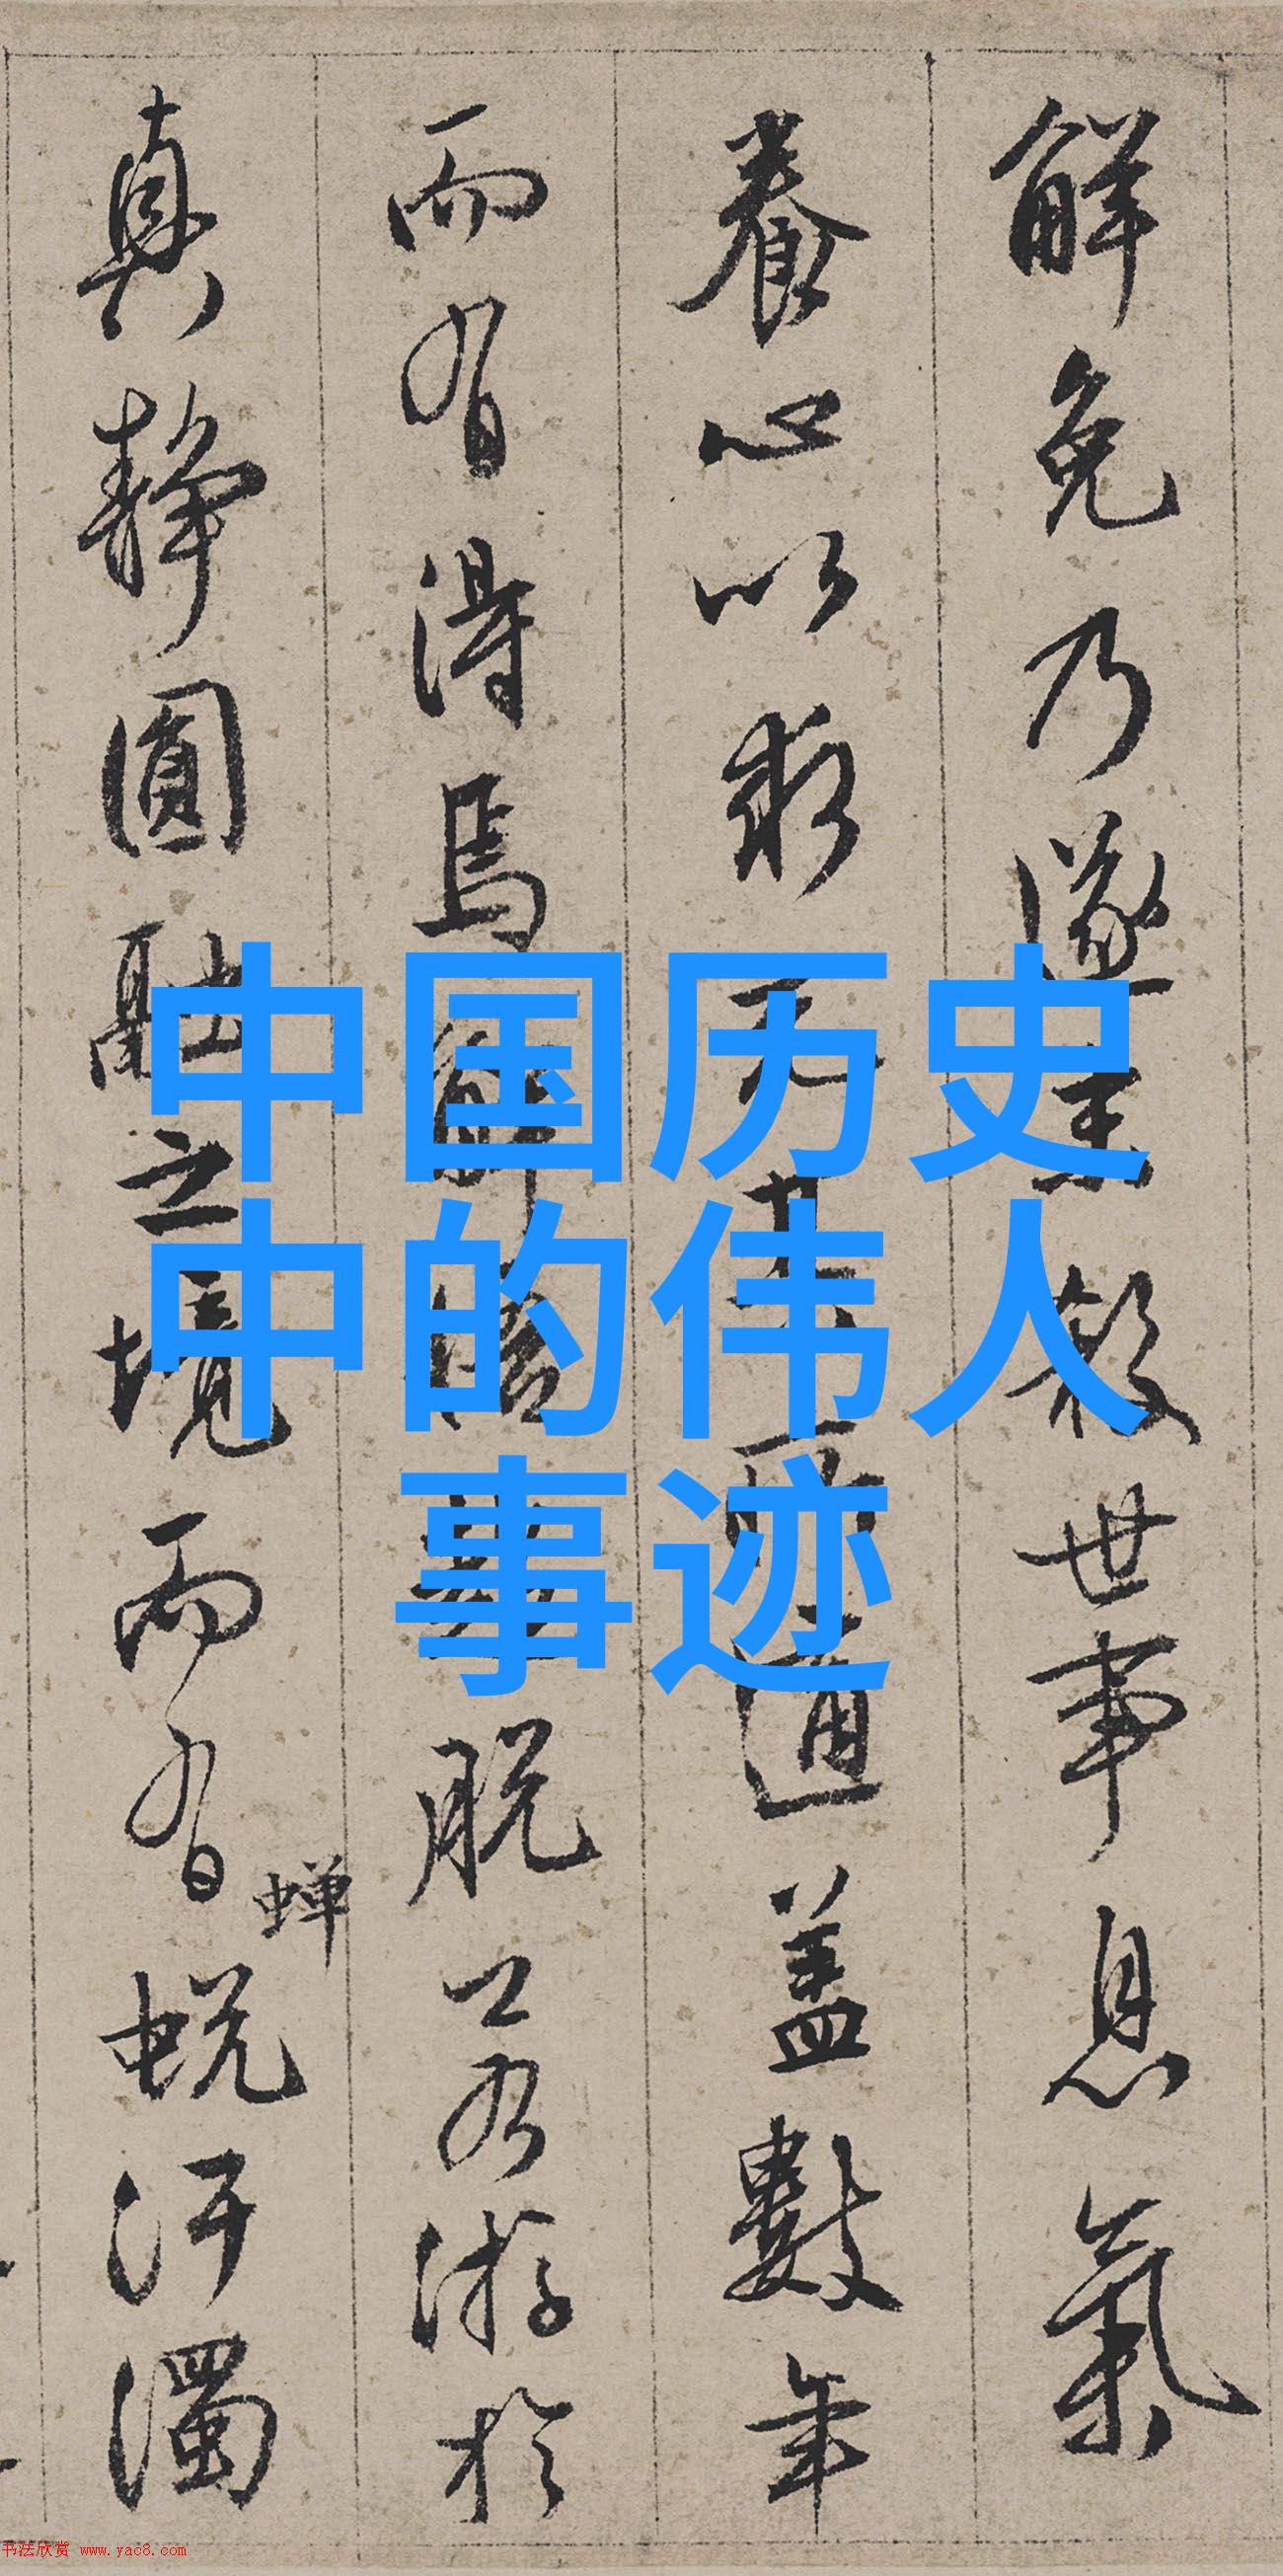 中国历史
中的伟人
事迹
解免乃遂世事息氣
養心以求蓋數年
而有得焉解悟脫若游於
真靜圓融之境而有蟬蛻汙濁
书法欣赏 www.yac8.com